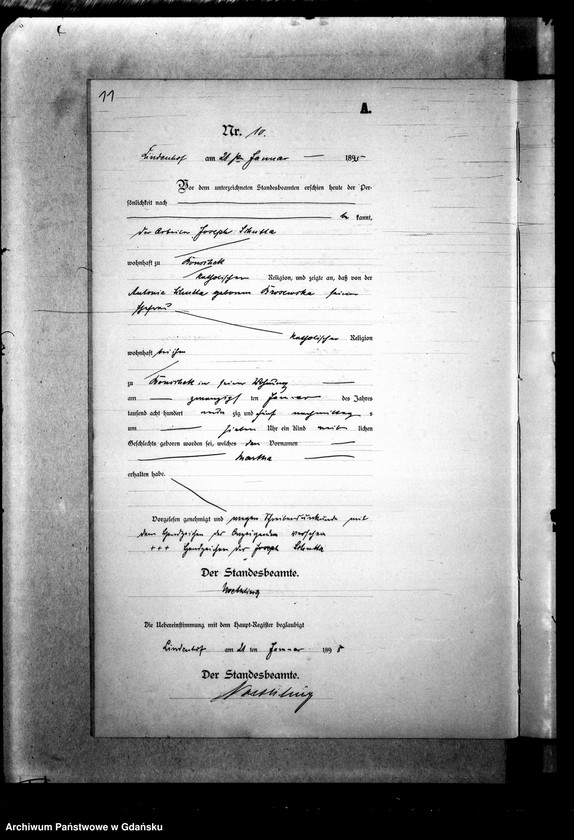 11
A.
Nr. 10.
Lindenhof am 21 ten Januar 1895
Vor dem unterzeichneten Standesbeamten erschien heute der Per-
sönlichkeit nach
be kannt,
der Arbeiter Joseph
wohnhaft zu
katholischer Religion, und zeigte an, daß von der
Antonie geborenen seiner
Ehefrau
katholischer Religion
wohnhaft bei ihm
zu in seiner Wohnung
am zwanzigsten ten Januar des Jahres
tausend acht hundert neun zig und fünf nachmittag s
um sieben Uhr ein Kind weib lichen
Geschlechts geboren worden sei, welches den Vornamen
Martha
erhalten habe.
Vorgelesen genehmigt und wegen Schreibensunkunde mit
dem Handzeichen des Anzeigenden versehen
+++ Handzeichen des Joseph
Der Standesbeamte.
Die Uebereinstimmung mit dem Haupt-Register beglaubigt
Lindenhof am 21 ten Januar 1895
Der Standesbeamte.
Archiwum Państwowe w Gdańsku